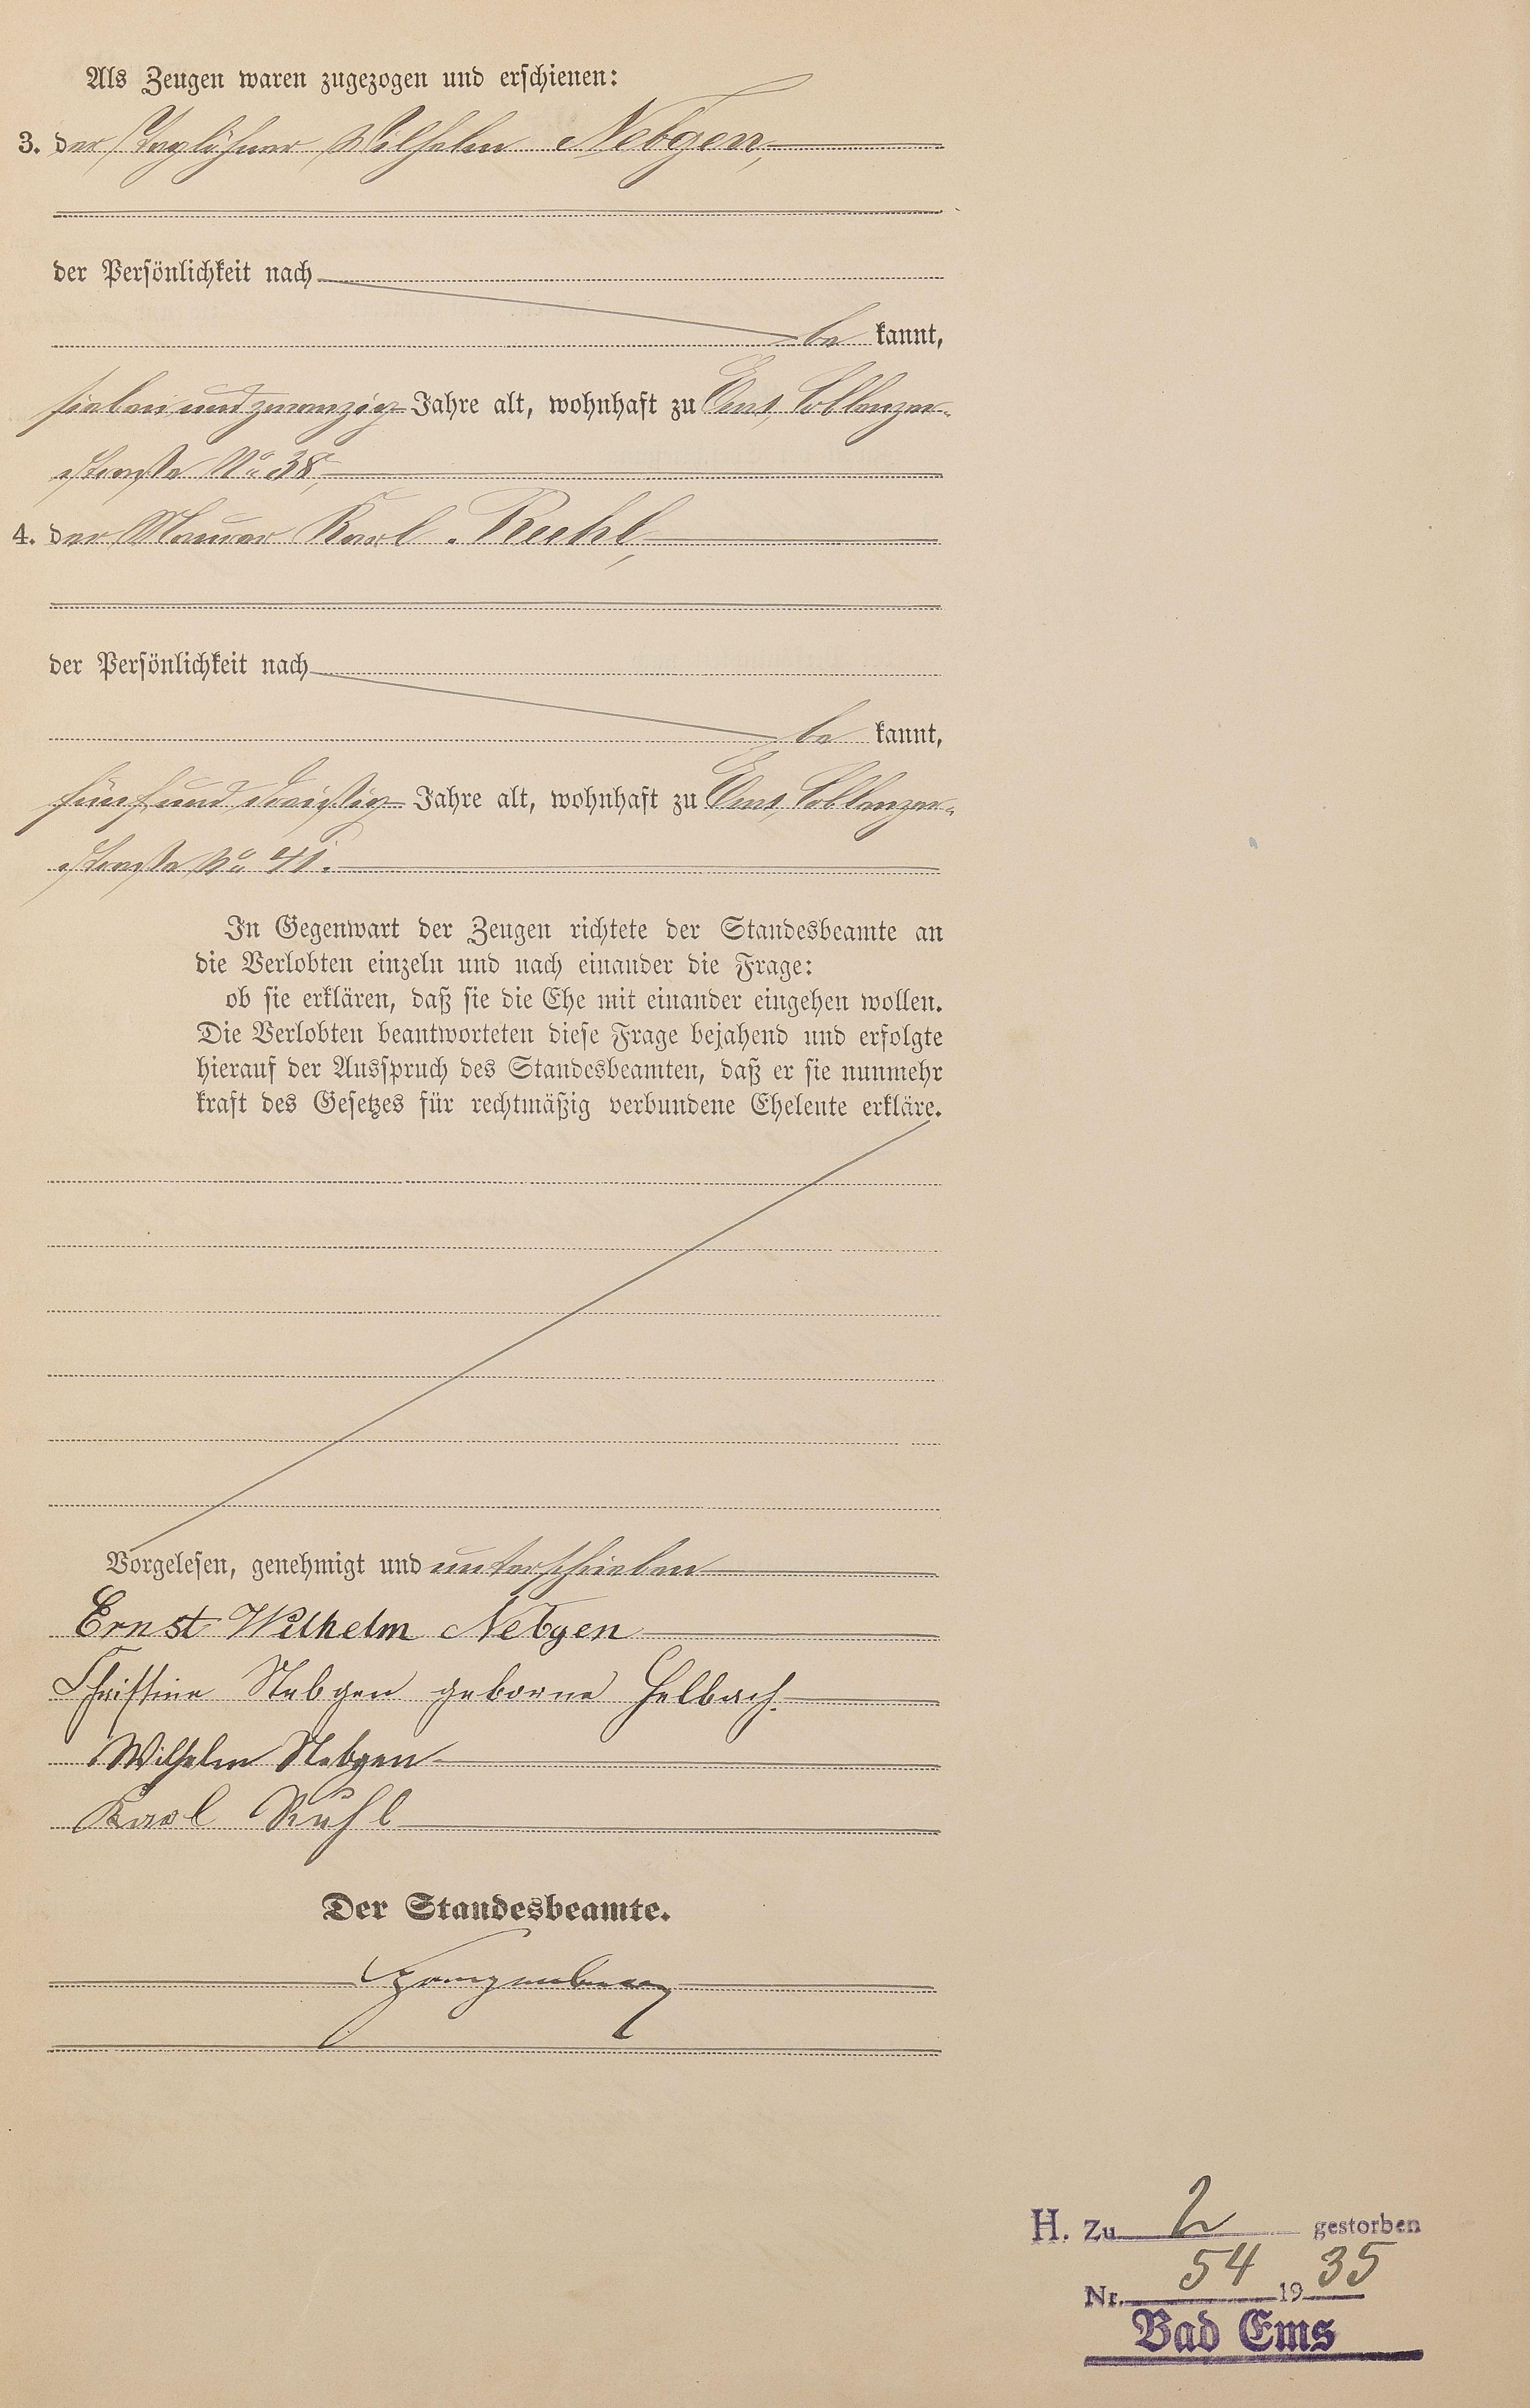 Als Zeugen waren zugezogen und erschienen:
3. der Taglöhner Wilhelm Nebgen,
der Persönlichkeit nach
be kannt,
sieben und zwanzig Jahre alt, wohnhaft zu Ems, Coblenzer-
straße No 38,
4. der Maurer Karl Ruhl,
der Persönlichkeit nach
be kannt,
fünf und dreißig Jahre alt, wohnhaft zu Ems, Coblenzer-
straße No 41.
In Gegenwart der Zeugen richtete der Standesbeamte an
die Verlobten einzeln und nach einander die Frage:
ob sie erklären, daß sie die Ehe mit einander eingehen wollen.
Die Verlobten beantworteten diese Frage bejahend und erfolgte
hierauf der Ausspruch des Standesbeamten, daß er sie nunmehr
kraft des Gesetzes für rechtmäßig verbundene Eheleute erkläre.
Vorgelesen, genehmigt und unterschrieben
Ernst Wilhelm Nebgen
Christine Nebgen geborne Helbach.
Wilhelm Nebgen
Karl Ruhl
Der Standesbeamte.
H. Zu 2 gestorben
Nr. 54 1935
Bad Ems